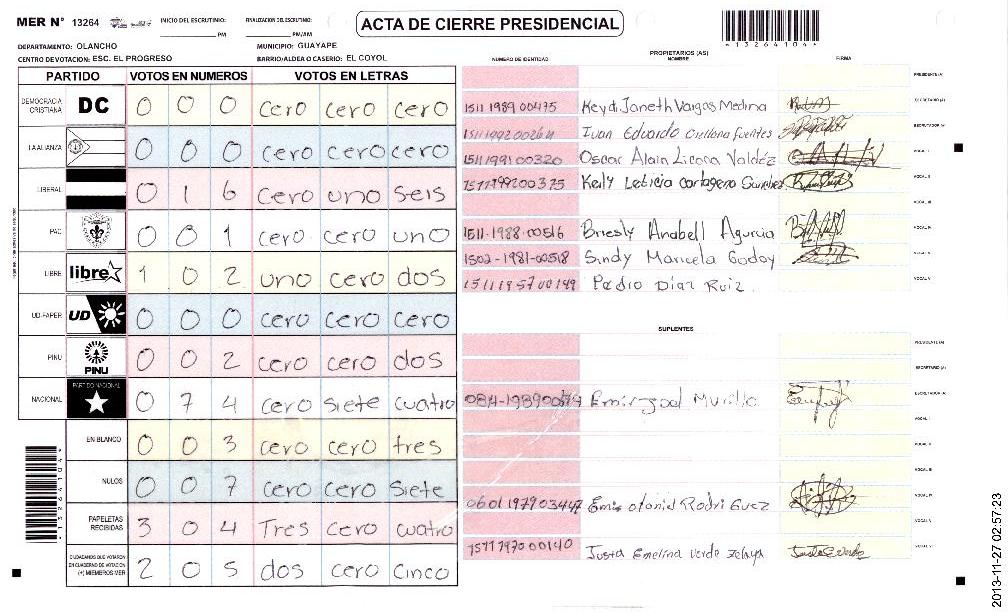 MER N° 13264 INICIO DEL ESCRUTINIO: PM FINALIZACION DEL ESCRUTINIO: PM/AM
ACTA DE CIERRE PRESIDENCIAL
*13264104*
DEPARTAMENTO: OLANCHO MUNICIPIO: GUAYAPE
CENTRO DE VOTACION: ESC. EL PROGRESO BARRIO/ALDEA O CASERIO: EL COYOL
PARTIDO VOTOS EN NUMEROS VOTOS EN LETRAS
DEMOCRACIA CRISTIANA DC 0 0 0 cero cero cero
LA ALIANZA 0 0 0 cero cero cero
LIBERAL 0 1 6 cero uno seis
PAC 0 0 1 cero cero uno
LIBRE libre 1 0 2 uno cero dos
UD-FAPER UD 0 0 0 cero cero cero
PINU PINU 0 0 2 cero cero dos
NACIONAL PARTIDO NACIONAL 0 7 4 cero siete cuatro
EN BLANCO 0 0 3 cero cero tres
NULOS 0 0 7 cero cero siete
PAPELETAS RECIBIDAS 3 0 4 Tres cero cuatro
CIUDADANOS QUE VOTARON EN CUADERNO DE VOTACION (+) MIEMBROS MER 2 0 5 dos cero cinco
PROPIETARIOS (AS)
NUMERO DE IDENTIDAD NOMBRE FIRMA
PRESIDENTE (A)
1511 1989 00475 Keydi Janeth Vargas Medina SECRETARIO (A)
Ivan Eduardo Orellana fuentes ESCRUTADOR (A)
1511 1991 00320 Oscar Alain Licona Valdéz VOCAL I
Keily Leticia Cartagena Sanchez VOCAL II
VOCAL III
1511-1988-00516 Briesly Anabell Agurcia VOCAL IV
1502-1981-00518 Sindy Maricela Godoy VOCAL V
1511 1957 00149 Pedro Díaz Ruiz VOCAL VI
SUPLENTES
PRESIDENTE (A)
SECRETARIO (A)
Murillo ESCRUTADOR (A)
VOCAL I
VOCAL II
VOCAL III
0601 1979 03447 Rodri Guez VOCAL IV
VOCAL V
1511 1970 00140 Justa Emelina Verde Zelaya VOCAL VI
2013-11-27 02:57:23